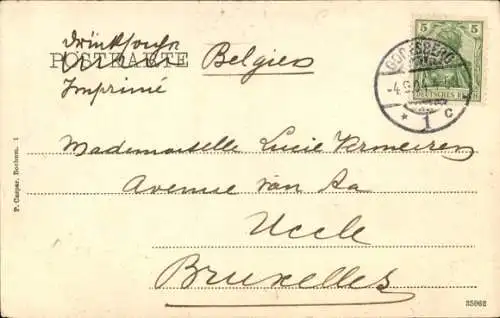 Drucksache
POSTKARTE
Imprimé
Belgien
5 5
DEUTSCHES REICH
GODESBERG
* 1 c
Mademoiselle Lucie Vermeeren
Avenue van Aa
Uccle
Bruxelles
P. Caspar, Bochum. 1
35962